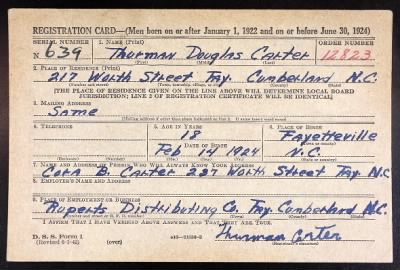 REGISTRATION CARD—(Men born on or after January 1, 1922 and on or before June 30, 1924)
SERIAL NUMBER 1. NAME (Print) ORDER NUMBER
N 639 Thurman Douglas Carter 12823
(First) (Middle) (Last)
2. PLACE OF RESIDENCE (Print)
217 Worth Street Fay. Cumberland N.C.
(Number and street) (Town, township, village, or city) (County) (State)
[THE PLACE OF RESIDENCE GIVEN ON THE LINE ABOVE WILL DETERMINE LOCAL BOARD
JURISDICTION; LINE 2 OF REGISTRATION CERTIFICATE WILL BE IDENTICAL]
3. MAILING ADDRESS
Same
[Mailing address if other than place indicated on line 2. If same insert word same]
4. TELEPHONE 5. AGE IN YEARS 6. PLACE OF BIRTH
18 Fayetteville
DATE OF BIRTH
Feb 14 1924 N.C.
(Exchange) (Number) (Mo.) (Day) (Yr.) (State or country)
7. NAME AND ADDRESS OF PERSON WHO WILL ALWAYS KNOW YOUR ADDRESS
Cora B. Carter 217 Worth Street Fay. N.C.
8. EMPLOYER'S NAME AND ADDRESS
9. PLACE OF EMPLOYMENT OR BUSINESS
Ruperts Distributing Co. Fay. Cumberland N.C.
(Number and street or R. F. D. number) (Town) (County) (State)
I AFFIRM THAT I HAVE VERIFIED ABOVE ANSWERS AND THAT THEY ARE TRUE.
D. S. S. Form 1
(Revised 6-9-42) (over) Thurman Carter